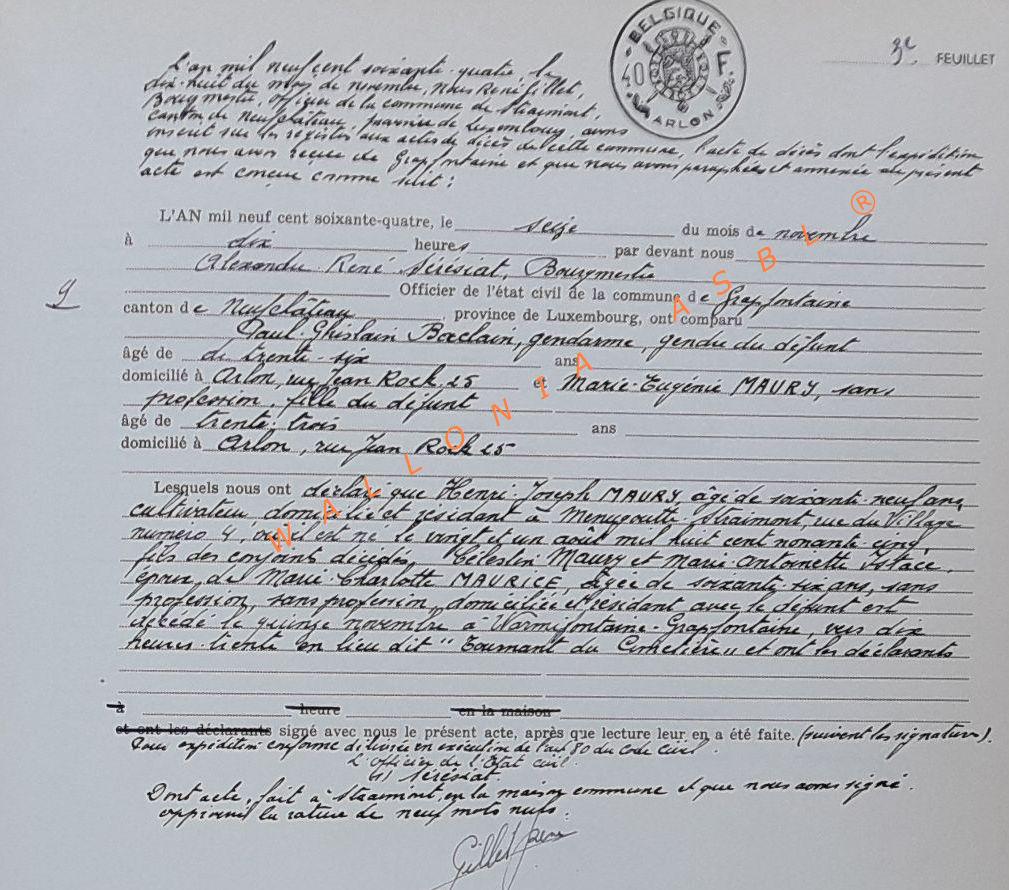 BELGIQUE
40 F.
ARLON
3e FEUILLET
L'an mil neuf cent soixante-quatre, le
dix-huit du mois de novembre, Nous René Gillet,
Bourgmestre, officier de la commune de Straimont,
canton de Neufchâteau, province de Luxembourg, avons
inscrit sur les registres aux actes de décès de cette commune, l'acte de décès dont l'expédition
que nous avons reçue de Grapfontaine et que nous avons paraphée et annexée au présent
acte est conçue comme suit :
L'AN mil neuf cent soixante-quatre, le seize du mois de novembre
à dix heures par devant nous
Alexandre René Sérésiat, Bourgmestre
Officier de l'état civil de la commune de Grapfontaine
9
canton de Neufchâteau, province de Luxembourg, ont comparu
Paul Ghislain Baclain, gendarme, gendre du défunt
âgé de de trente-six ans
domicilié à Arlon, rue Jean Rock, 25 et Marie-Eugénie MAURY, sans
profession, fille du défunt
âgé de trente-trois ans
domicilié à Arlon, rue Jean Rock 25
Lesquels nous ont déclaré que Henri-Joseph MAURY âgé de soixante-neuf ans,
cultivateur domicilié et résidant à Menugoutte Straimont, rue du Village
numéro 4, où il est né le vingt et un août mil huit cent nonante-cinq
fils des conjoints décédés, Célestin Maury et Marie-Antoinette Istace,
époux de Marie-Charlotte MAURICE, âgée de soixante-six ans, sans
profession, sans profession, domiciliée et résidant avec le défunt est
décédé le quinze novembre à Warmifontaine-Grapfontaine, vers dix
heures trente en lieu dit "Tournant du Cimetière" et ont les déclarants
à heure en la maison
et ont les déclarants signé avec nous le présent acte, après que lecture leur en a été faite. (suivent les signatures).
Pour expédition conforme délivrée en exécution de l'art 80 du Code Civil.
L'officier de l'Etat civil.
(s) Sérésiat.
Dont acte, fait à Straimont, en la maison commune et que nous avons signé.
approuvé la rature de neuf mots nuls.
Gillet René
WALLONIA ASBL ®